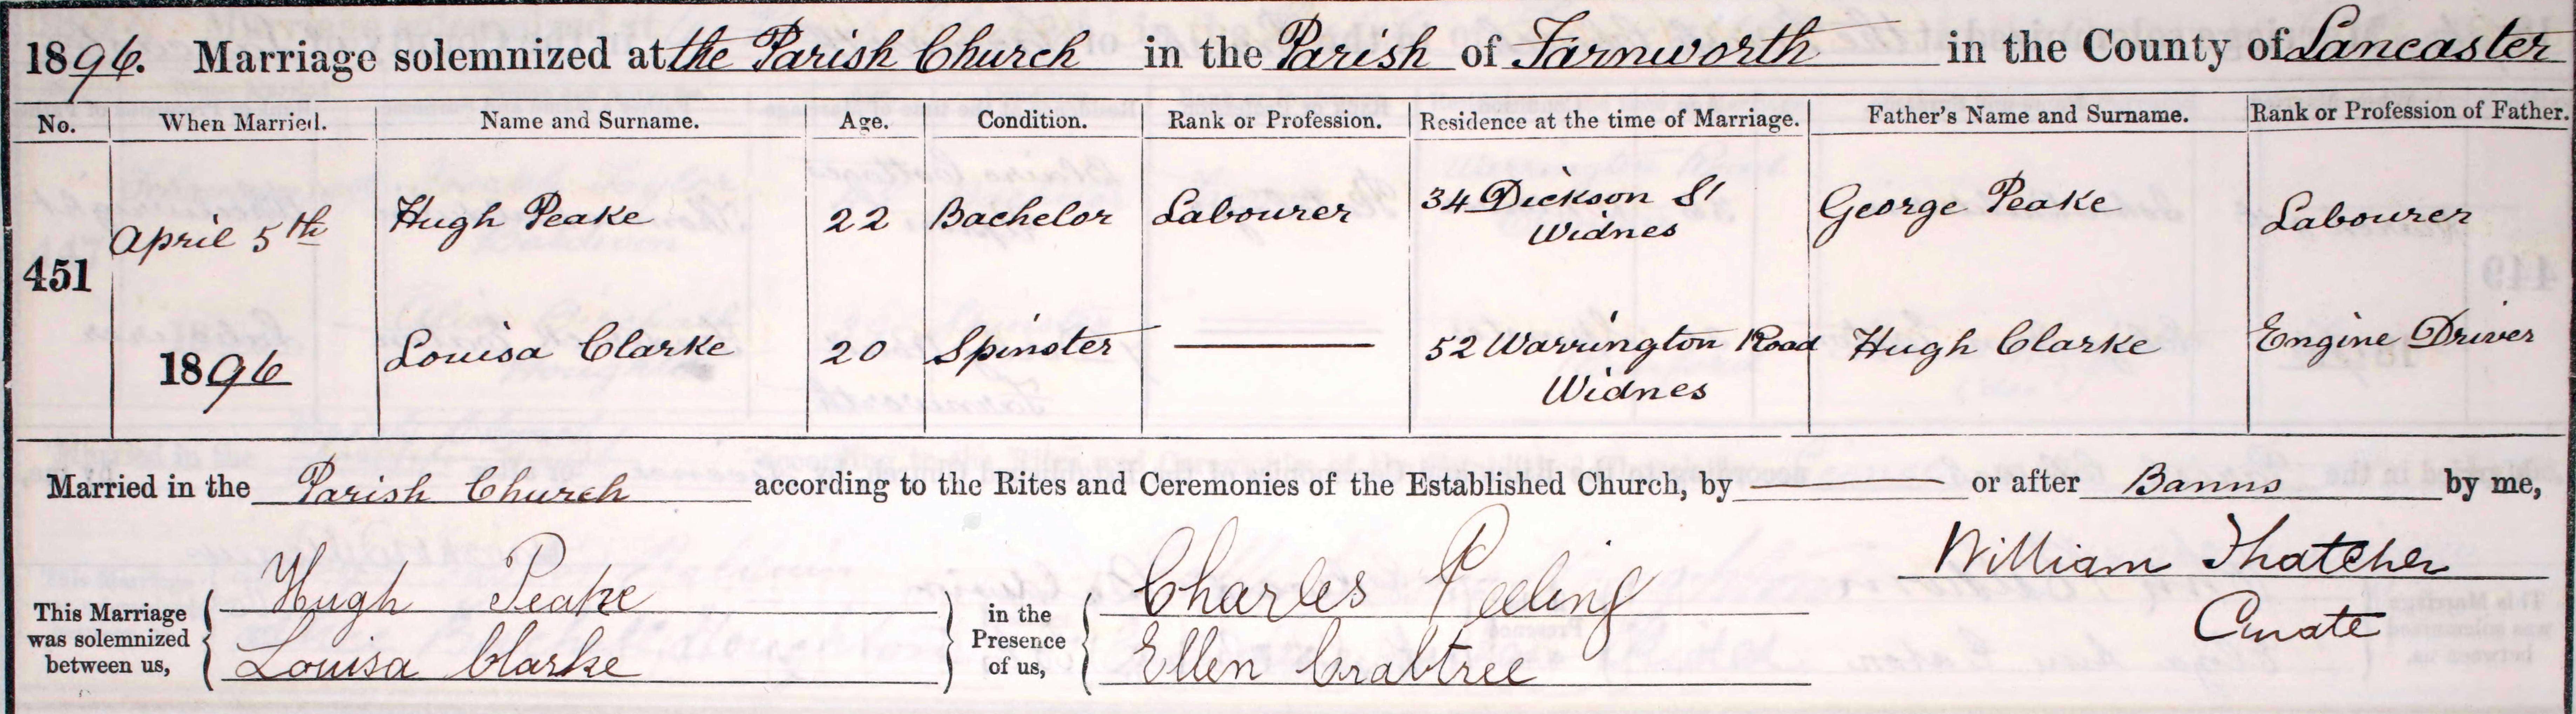 1896. Marriage solemnized at the Parish Church in the Parish of Farnworth in the County of Lancaster
No. When Married. Name and Surname. Age. Condition. Rank or Profession. Residence at the time of Marriage. Father's Name and Surname. Rank or Profession of Father.
451
April 5th Hugh Peake 22 Bachelor Labourer 34 Dickson St Widnes George Peake Labourer
1896 Louisa Clarke 20 Spinster 52 Warrington Road Widnes Hugh Clarke Engine Driver
Married in the Parish Church according to the Rites and Ceremonies of the Established Church, by or after Banns by me,
William Thatcher
Curate
This Marriage was solemnized between us,
Hugh Peake
Louisa Clarke
in the Presence of us,
Charles Peeling
Ellen Crabtree